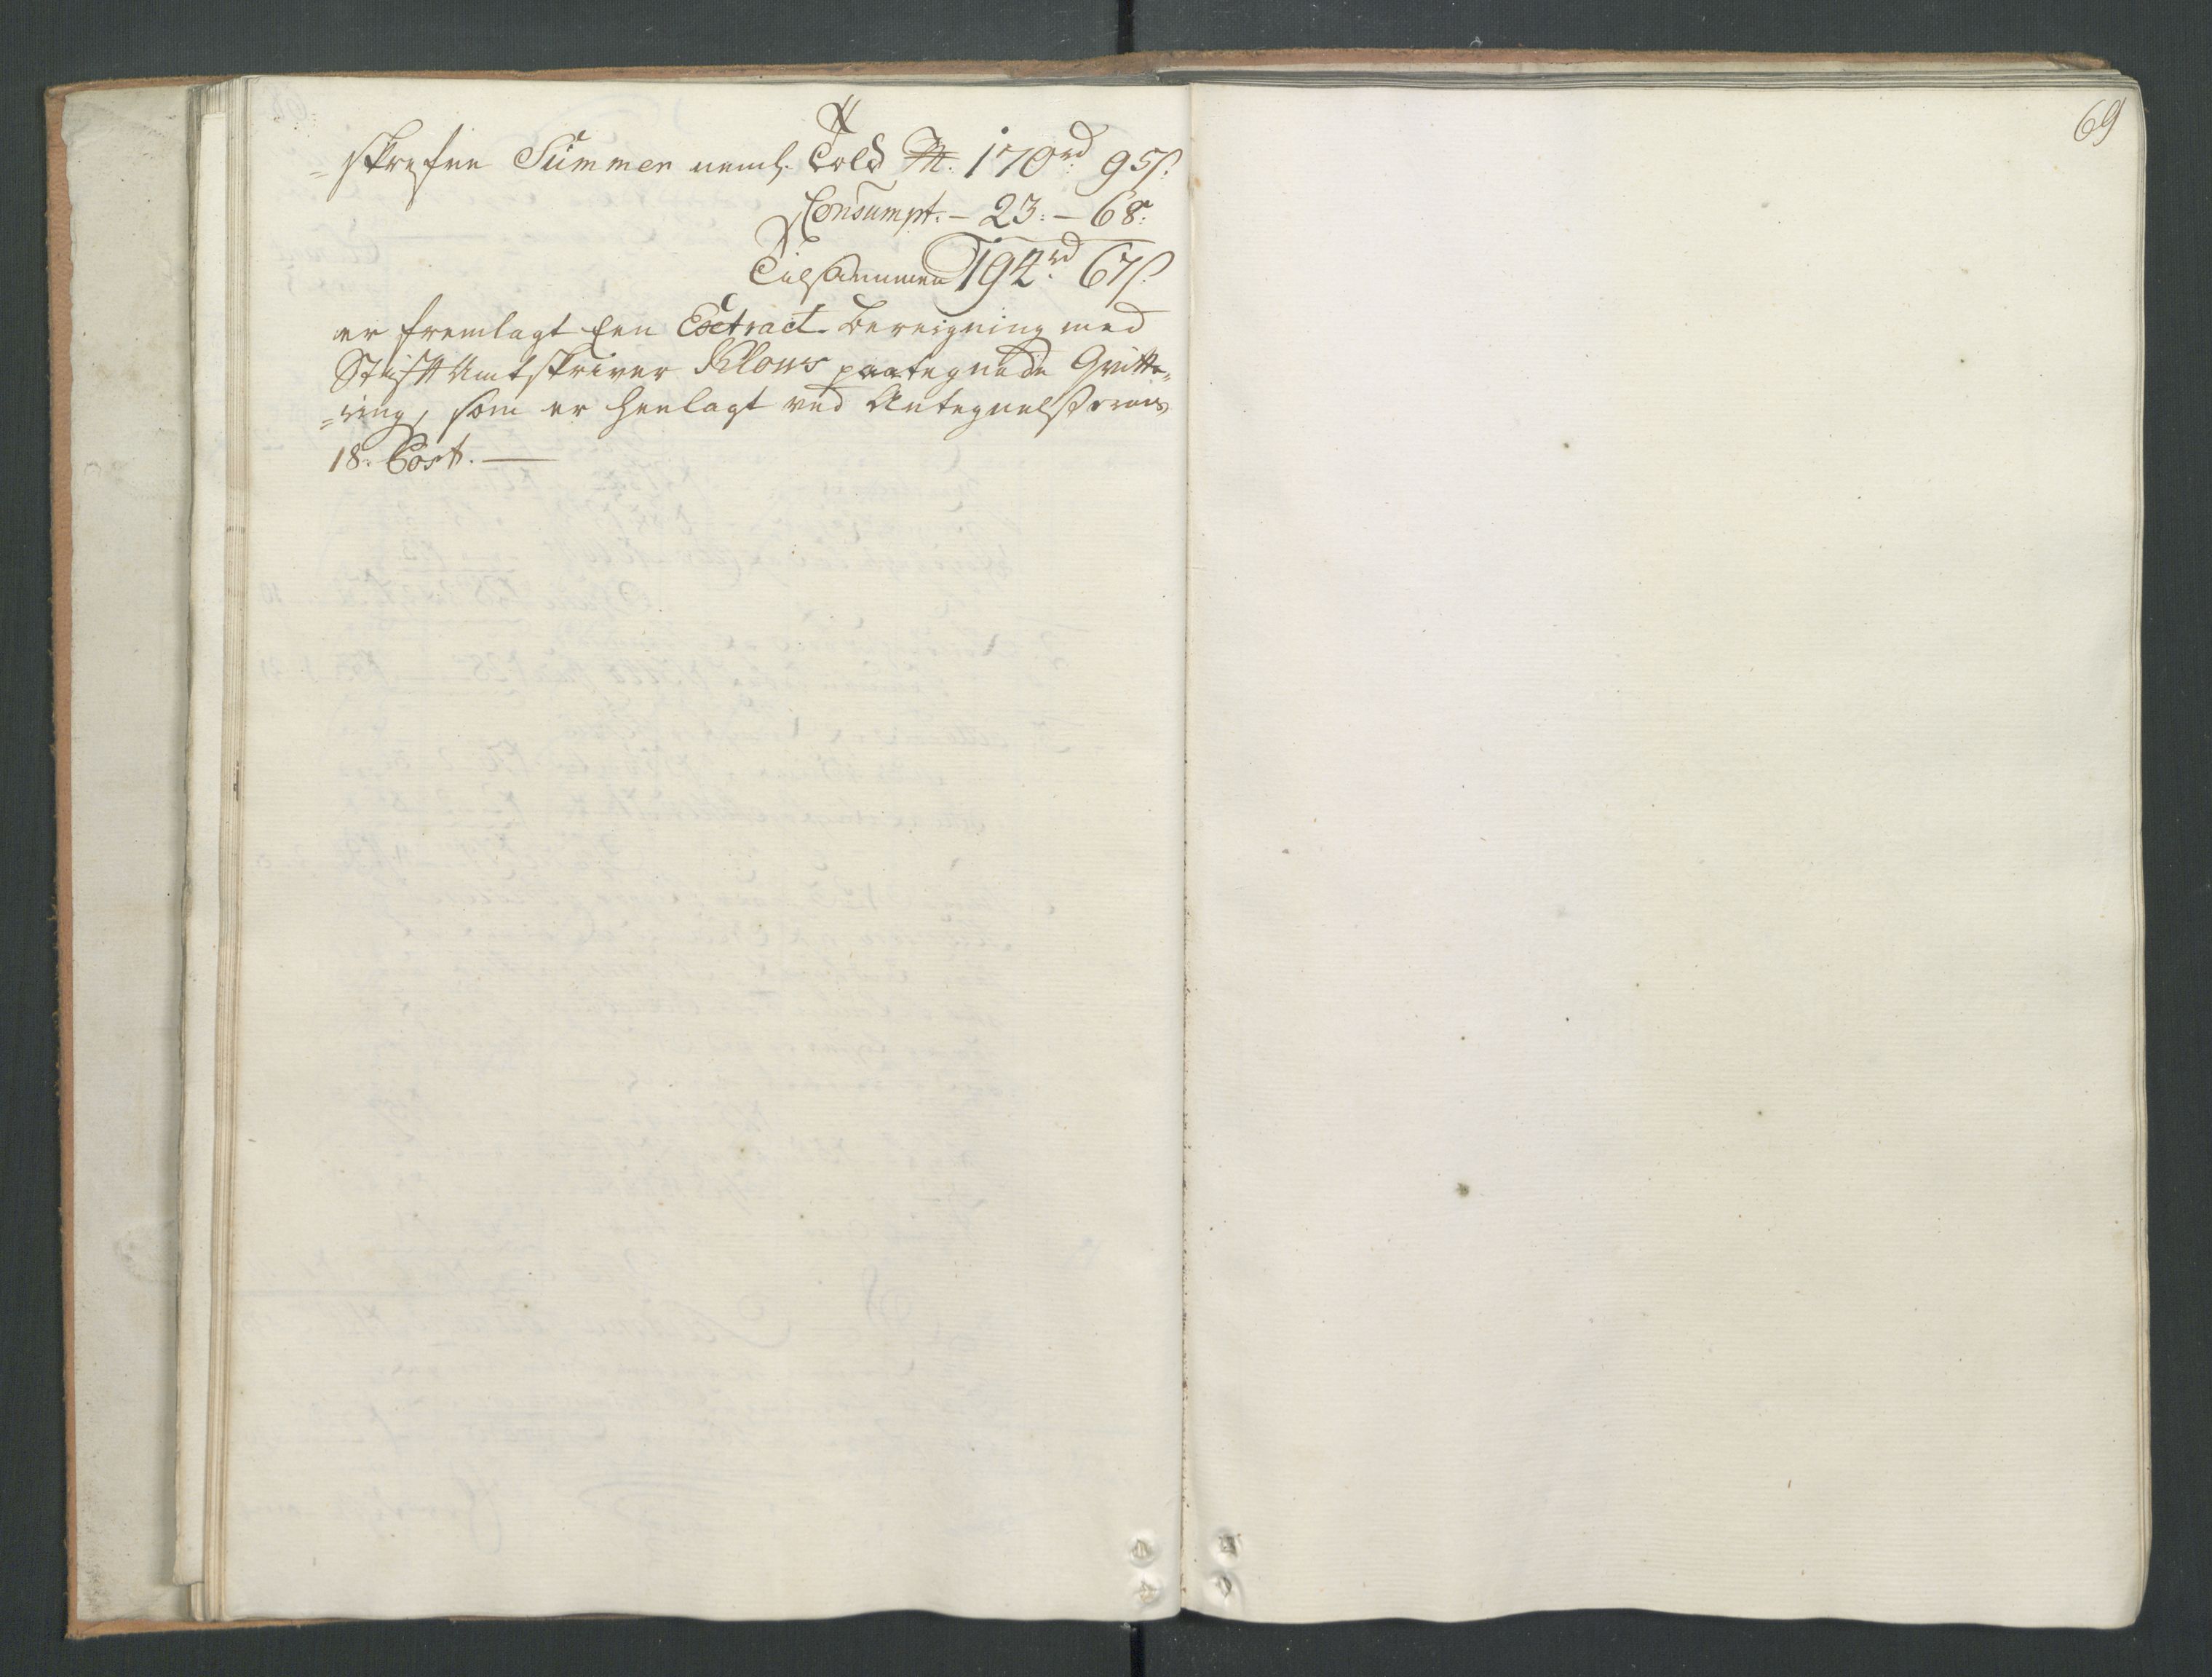 69
=skrefne Summer neml. Told 170rd 95s.
Consumpt. – 23. – 68.
Tilsammen 194rd 67s.
er fremlagt een Extract-bereigning med
Stift Amtskriver Klows paategnede Qvitte=
=ring, som er henlagt ved Antegnelsernes
18. Post. —